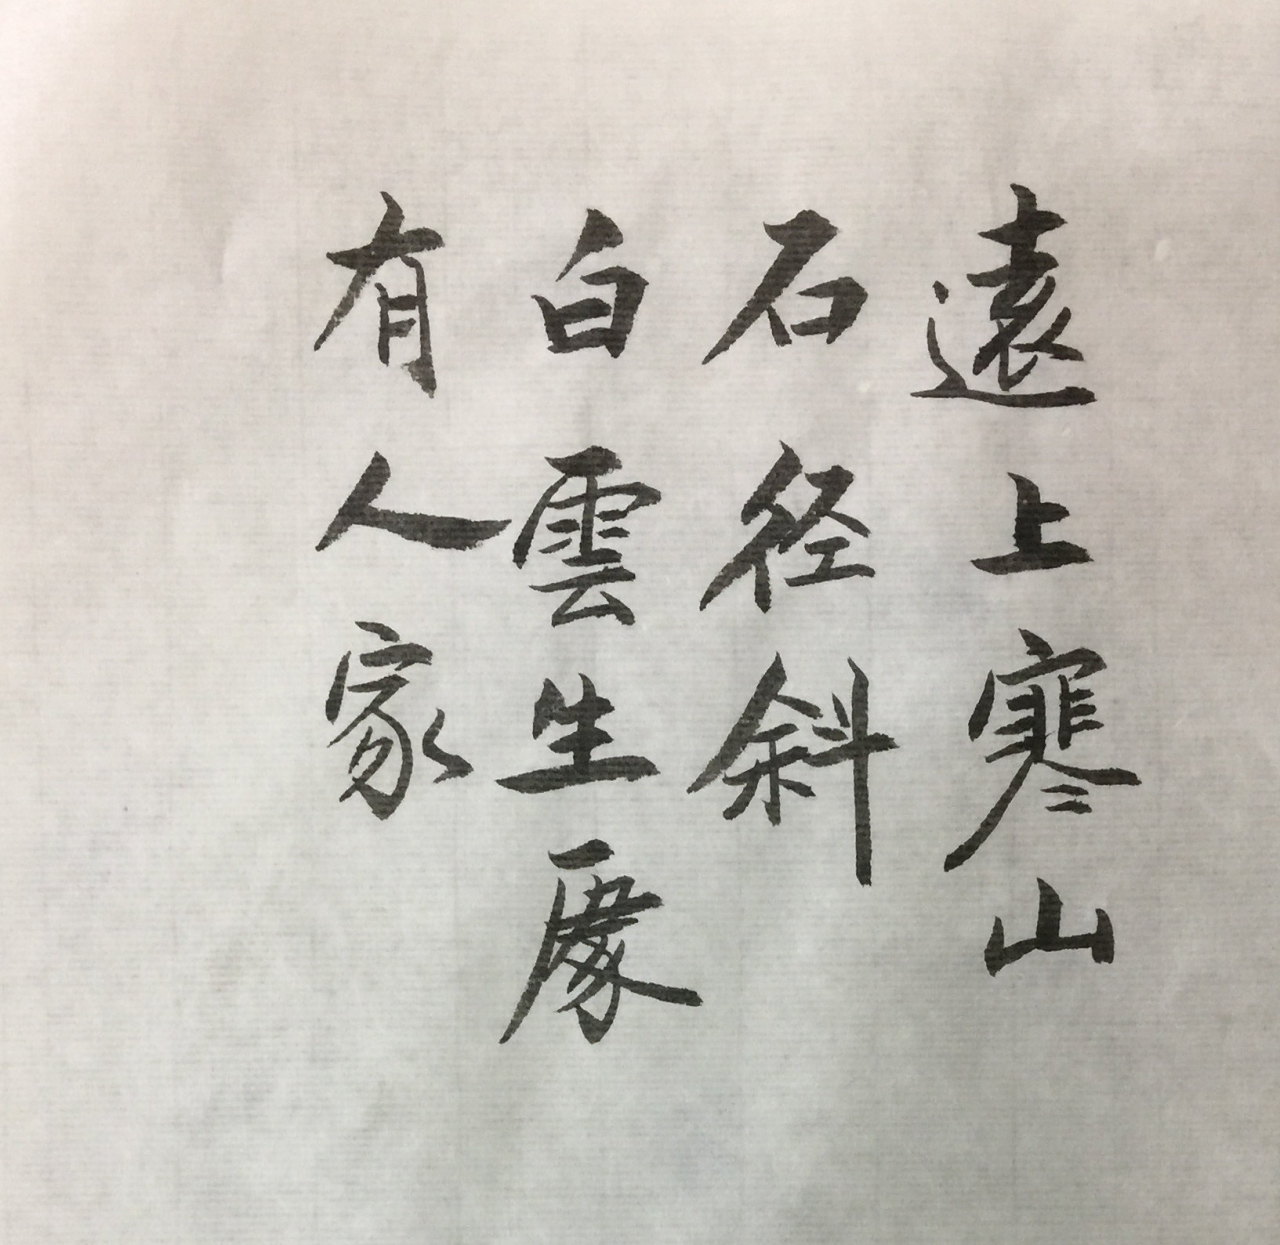 遠上寒山
石径斜
白雲生處
有人家